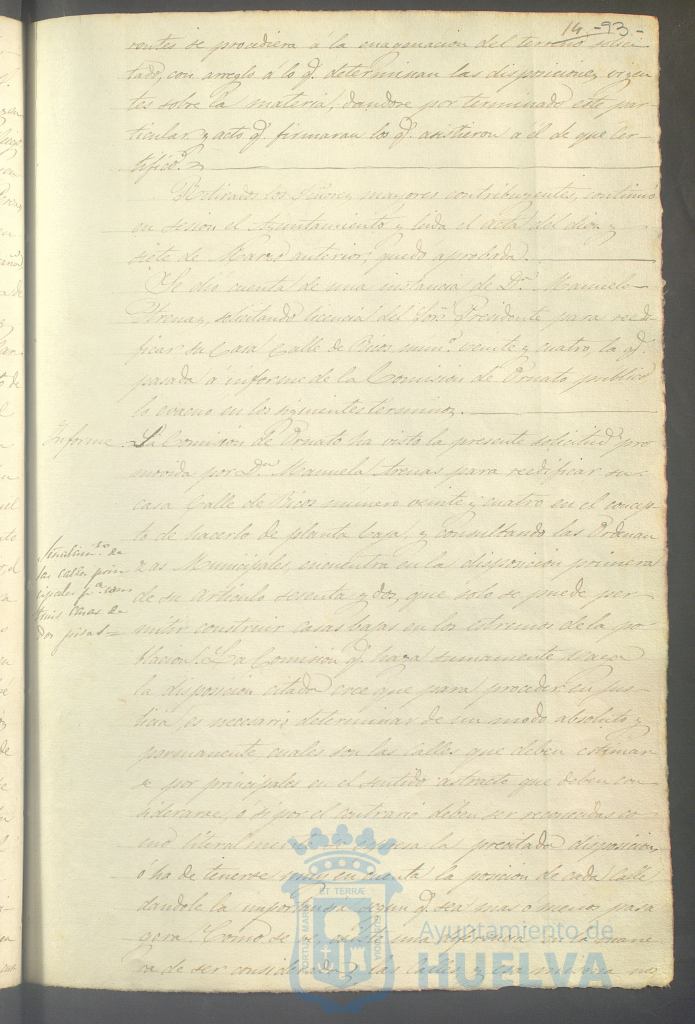 14 -93-
rentes se procediera á la enagenacion del terreno solici-
tado, con arreglo á lo q. determinan las disposiciones vigen-
tes sobre la materia, dandose por terminado este par-
ticular y acto q. firmaran los q. asistieron a él de que cer-
tifico.
Retirados los Señores mayores contribuyentes, continuó
en sesion el Ayuntamiento y leida el acta del diez y
siete de Marzo anterior, quedo aprobada.
Se dió cuenta de una instancia de Dª. Manuela
Arenas, solicitando licencia del Sor. Presidente para reedi-
ficar su Casa Calle de Ricos num.º veinte y cuatro, la q.
pasada á informe de la Comision de Ornato publico
lo evacuo en los siguientes terminos.
Informe
La Comision de Ornato ha visto la presente solicitud pro-
movida por Dª. Manuela Arenas para reedificar su
casa Calle de Ricos numero veinte y cuatro en el concep-
to de hacerlo de planta baja, y consultando las Ordenan-
zas Municipales, encuentra en la disposicion primera
de su articulo sesenta y dos, que solo se puede per-
mitir construir casas bajas en los estremos de la po-
blacion. La Comision q. haya sumamente vaga
la disposicion citada cree que para proceder en jus-
ticia, es necesario determinar de un modo absoluto y
permanente cuales son las calles que deben estimar-
se por principales en el sentido astracto que deben con-
siderarse, ó si por el contrario deben ser reconocidas co-
mo literalmente espresa la precitada disposicion,
ó ha de tenerse muy en cuenta la posicion de cada Calle
dandole la importancia segun q. sea mas o menos pasa-
gera. Como se ve, existe una diferencia en la mane-
ra de ser consideradas las calles, y esa misma
las calles prin-
cipales pª. cons-
truir casas de
dos pisos
PORTUS MARIS ET TERRÆ CUSTODIA
Ayuntamiento de
HUELVA